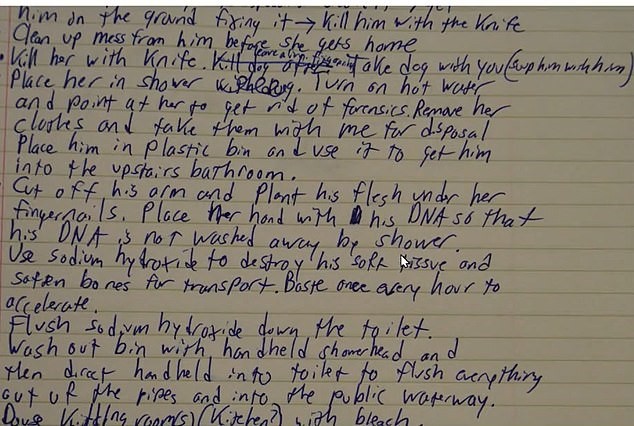 him on the ground fixing it → Kill him with the knife
Clean up mess from him before she gets home
• Kill her with knife. Take dog with you
Place her in shower. Turn on hot water
and point at her to get rid of forensics. Remove her
clothes and take them with me for disposal
Place him in plastic bin and use it to get him
into the upstairs bathroom.
Cut off his arm and plant his flesh under her
fingernails. Place her hand with his DNA so that
his DNA is not washed away by shower.
Use sodium hydroxide to destroy his soft tissue and
soften bones for transport. Baste once every hour to
accelerate.
Flush sodium hydroxide down the toilet.
Wash out bin with handheld showerhead and
then direct handheld into toilet to flush everything
out of the pipes and into the public waterway.
Douse Killing room(s) (Kitchen?) with bleach.